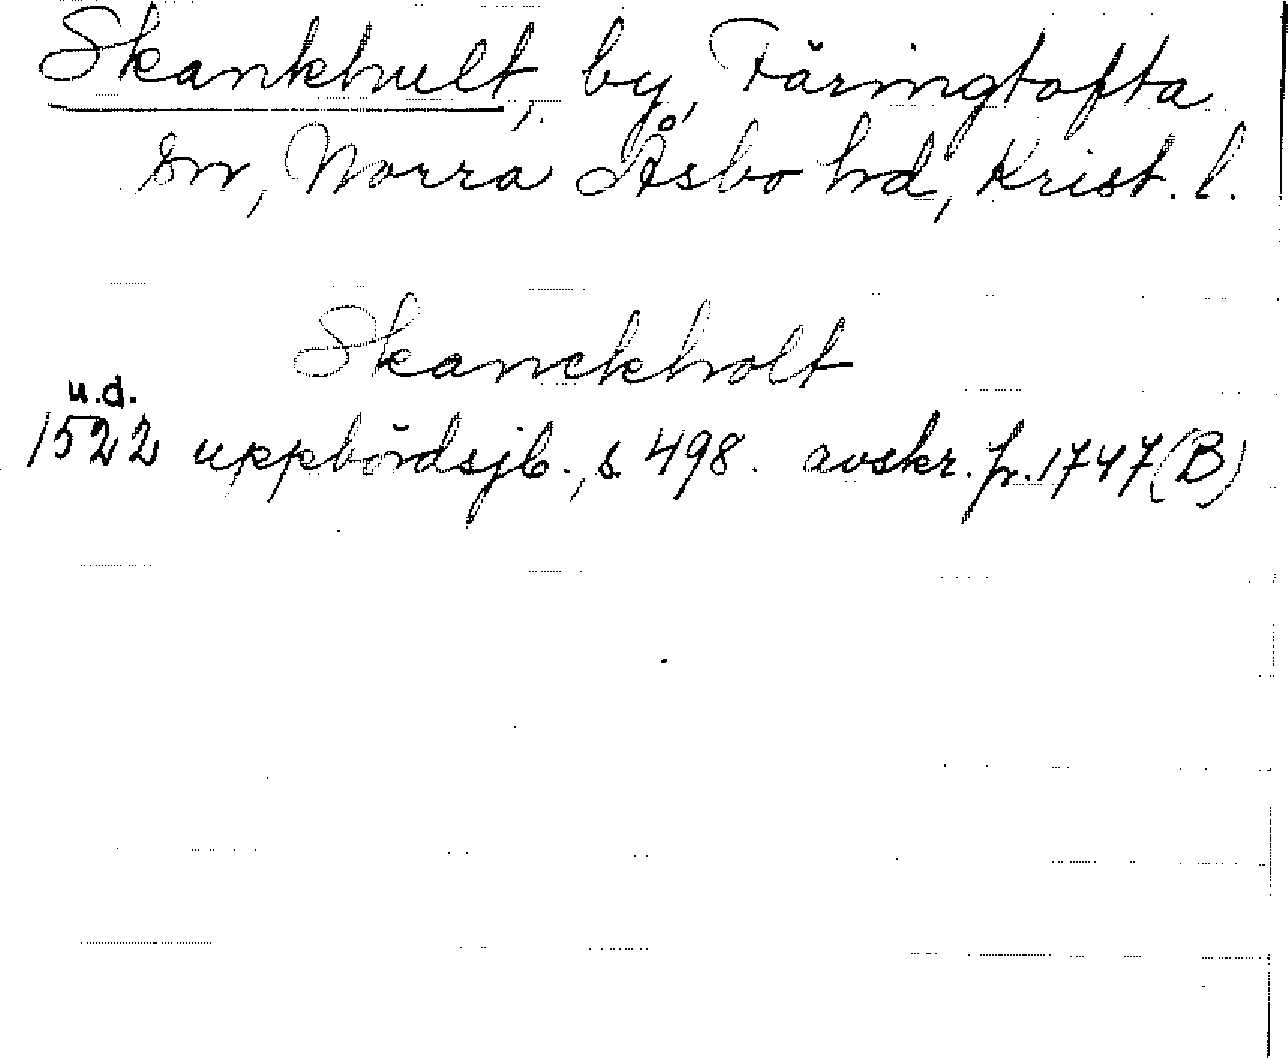 Skankhult, by, Färingtofta
sn, Norra Åsbo hd, Krist. l.
Skanckholt
u.d.
1522 uppbördsjb., s. 498. avskr. fr. 1747 (B)